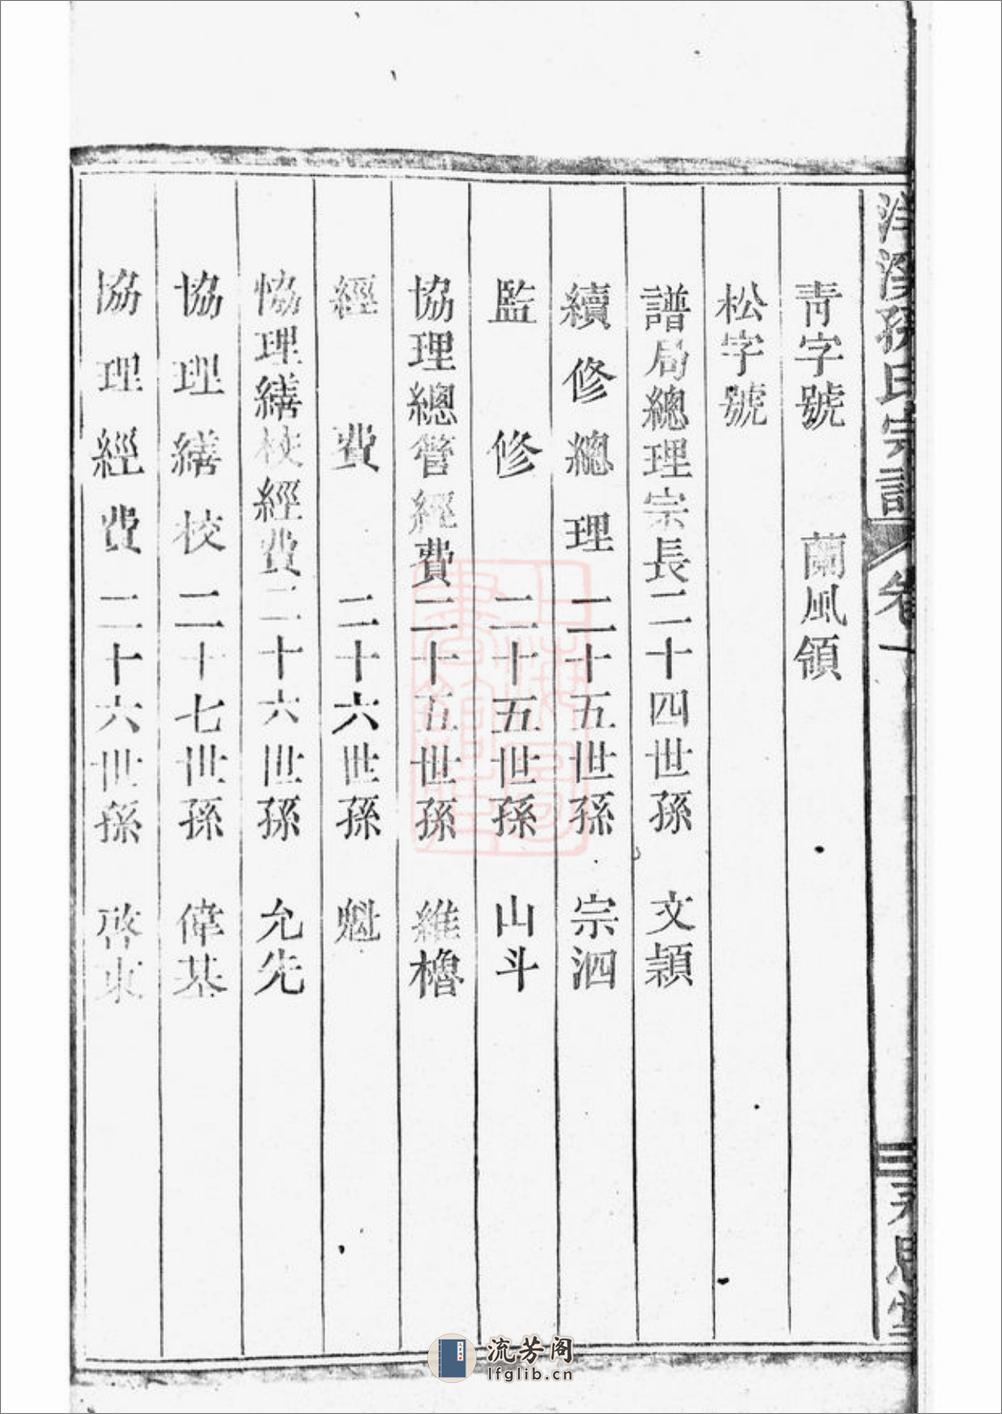 洋溪孫氏宗譜 卷一 三 永思堂
青字號 蘭風領
松字號
譜局總理宗長二十四世孫 文穎
續修總理二十五世孫 宗泗
監修二十五世孫 山斗
協理總管經費二十五世孫 維櫓
經費二十六世孫 魁
恊理繕校經費二十六世孫 允先
協理繕校二十七世孫 偉基
協理經費二十六世孫 啓東
上海圖書館藏
流芳阁
lfglib.cn